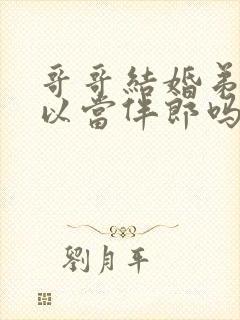 哥哥結婚弟
以當伴郎吗
劉月平